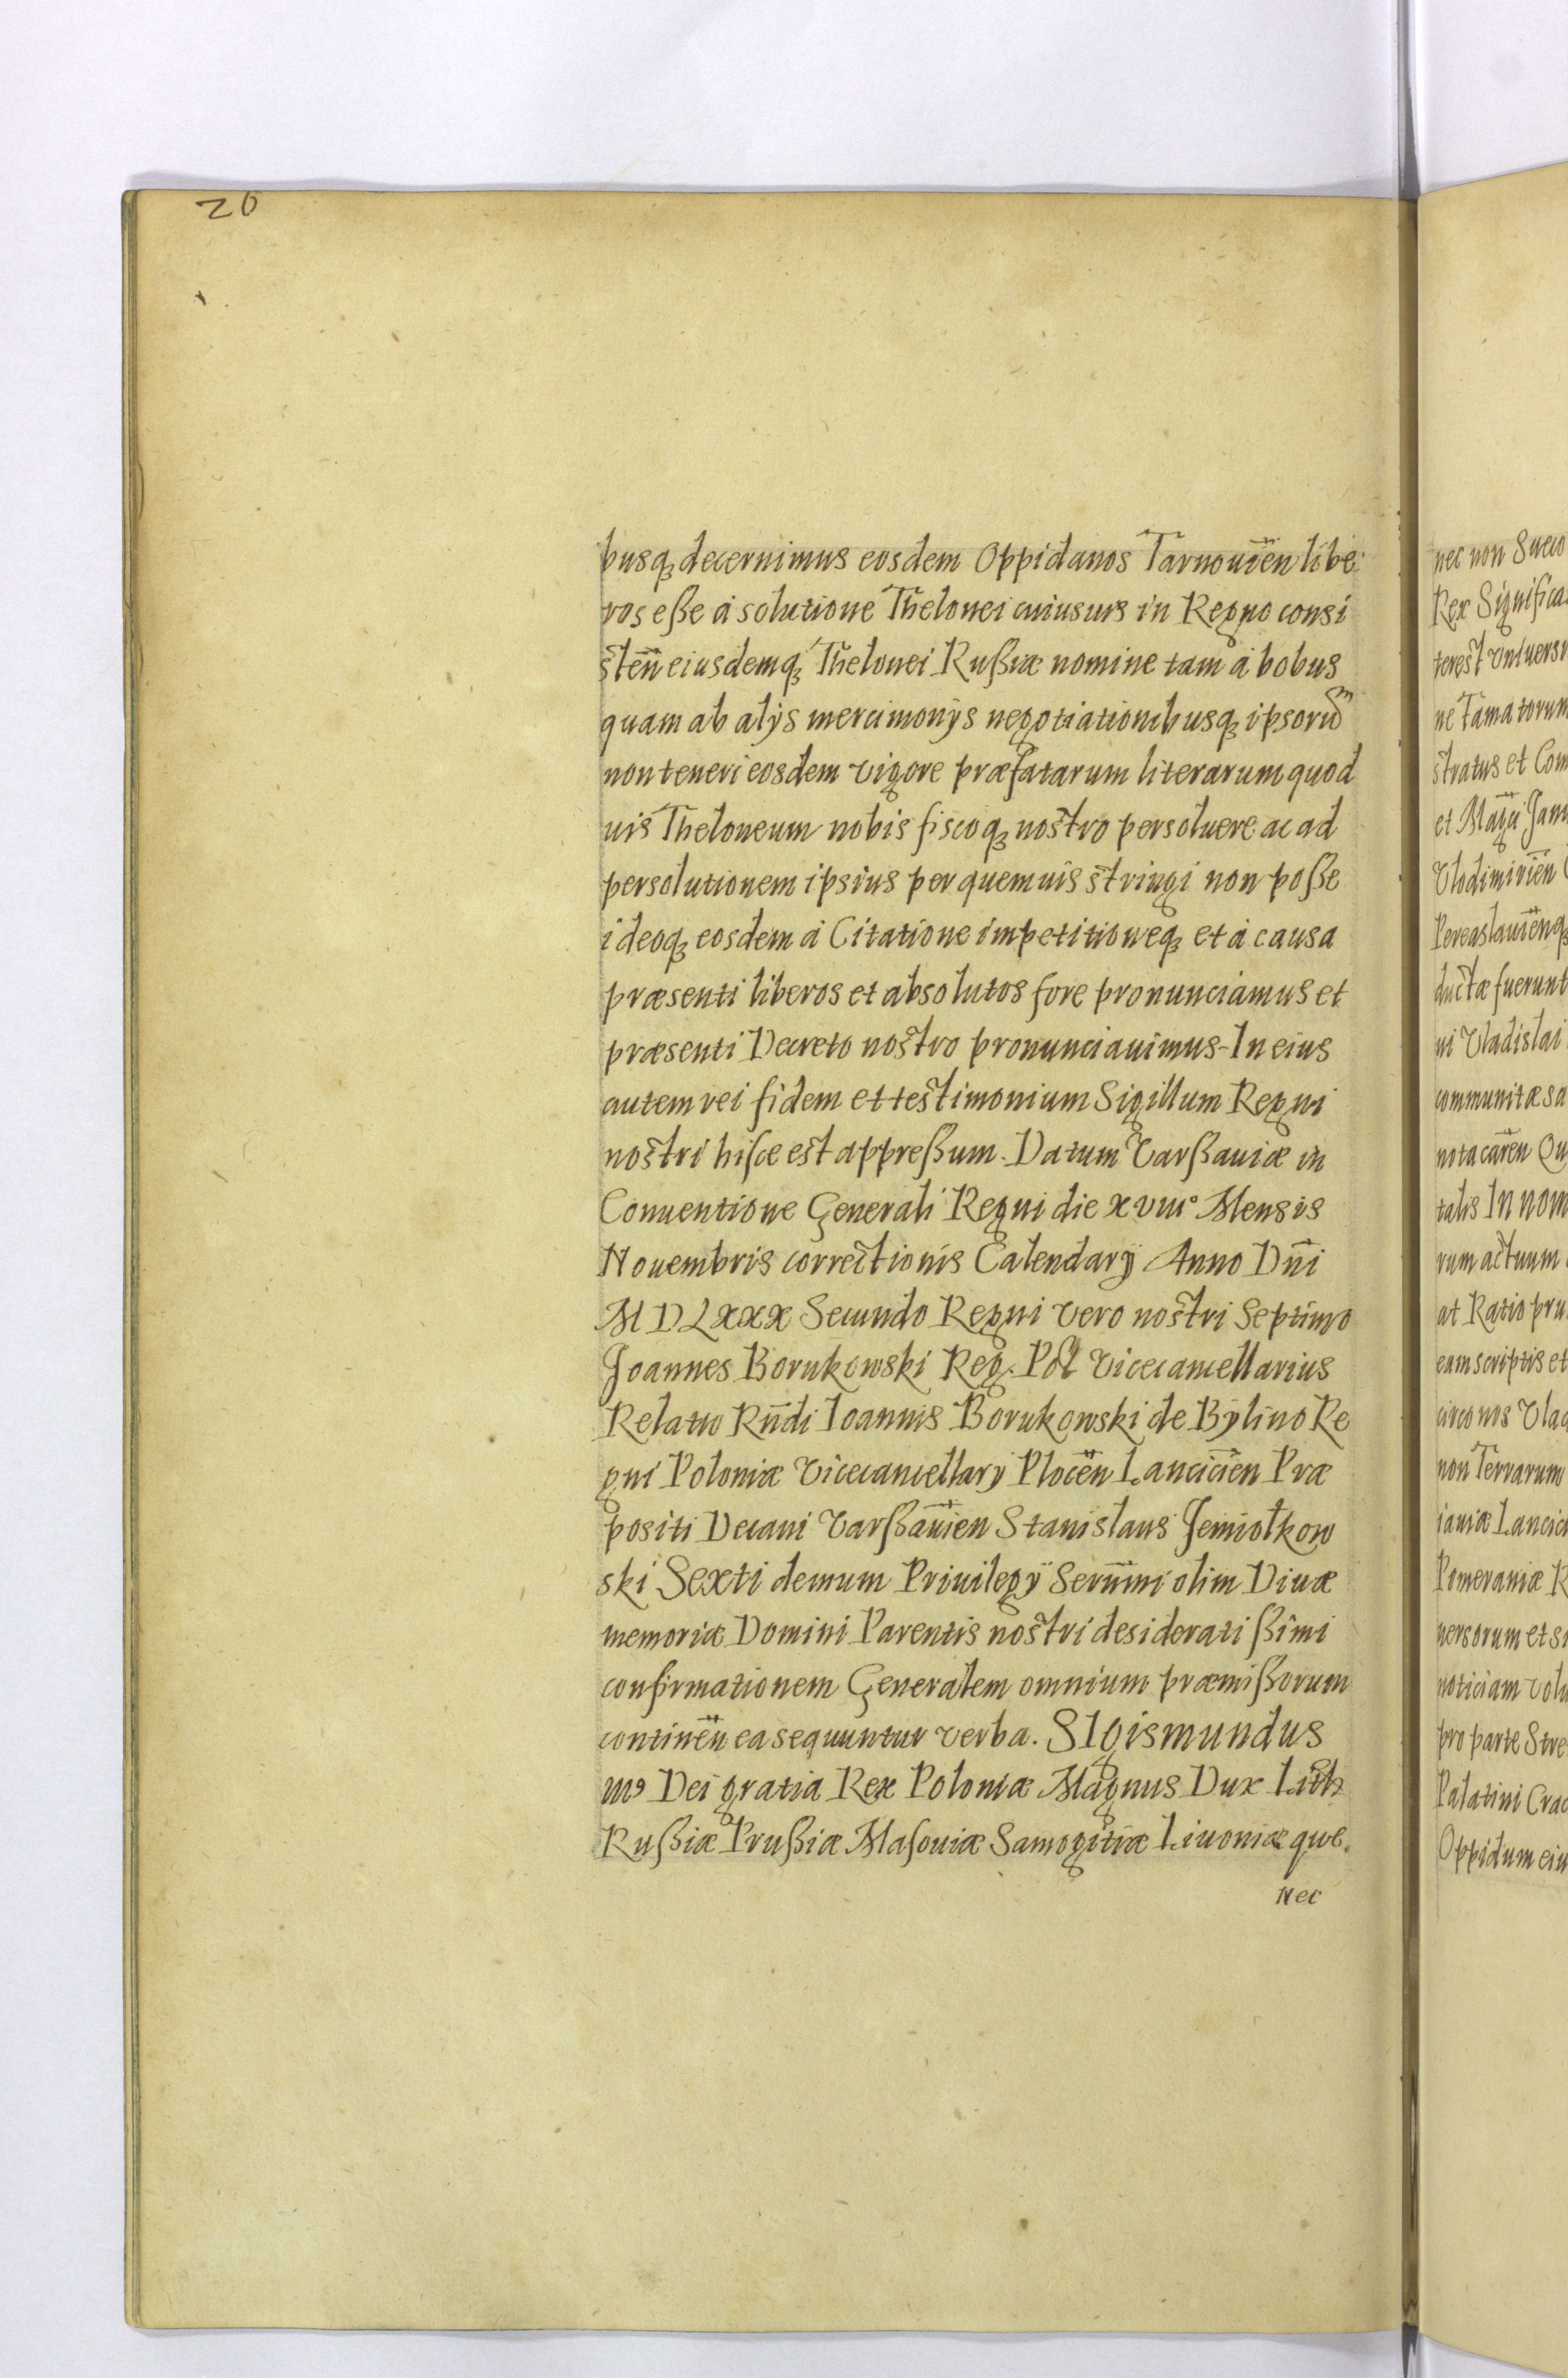 20
busq; decernimus eosdem Oppidanos Tarnouień libe
ros eße à solutione Thelonei cuiusuis in Regno consi
steñ eiusdemq; Thelonei Rußiæ nomine tam à bobus
quam ab alijs mercimonijs negotiationibusq; ipsorum
non teneri eosdem vigore præfatarum literarum quod
uis Theloneum nobis fiscoq; nostro persoluere ac ad
persolutionem ipsius per quemuis stringi non poße
ideoq; eosdem à Citatione impetitioneq; et à causa
præsenti liberos et absolutos fore pronunciamus et
præsenti Decreto nostro pronunciauimus. In eius
autem rei fidem et testimonium Sigillum Regni
nostri hisce est appreßum. Datum Varßauiæ in
Conuentione Generali Regni die xviii° Mensis
Nouembris correctionis Calendarij Anno Dñi
MDLXXX Secundo Regni vero nostri Septimo
Joannes Borukowski Reg. Pol Vicecancellarius
Relatio Rñdi Ioannis Borukowski de Bylino Re
gni Poloniæ Vicecancellary Ploceñ Lancicień Præ
positi Decani Varßauień Stanislaus Jemiołkow
ski Sexti demum Priuilegij Sereñmi olim Diuæ
memoriæ Domini Parentis nostri desideratißimi
confirmationem Generalem omnium præmißorum
contineñ ea sequuntur verba. SIgismundus
IIIꝰ Dei gratia Rex Poloniæ Magnus Dux Lith
Rußiæ Prußiæ Masouiæ Samogitiæ Liuoniæque.
Nec
nec non Sueco
Rex Significa
terest Vniuersi
ne Tam a torum
stratus et Com
et Mag̃ci Jani
Vlodimirień
Pereaslauieñq;
ductæ fuerunt
ni Vladislai
communitæ sa
nota careñ Qu
talis In nom
rum actuum
at Ratio pru
eam scriptis et
circo nos Vlad
non Terrarum
iauiæ Lancici
Pomeraniæ R
uersorum et si
noticiam volu
pro parte Stre
Palatini Crac
Oppidum eiu